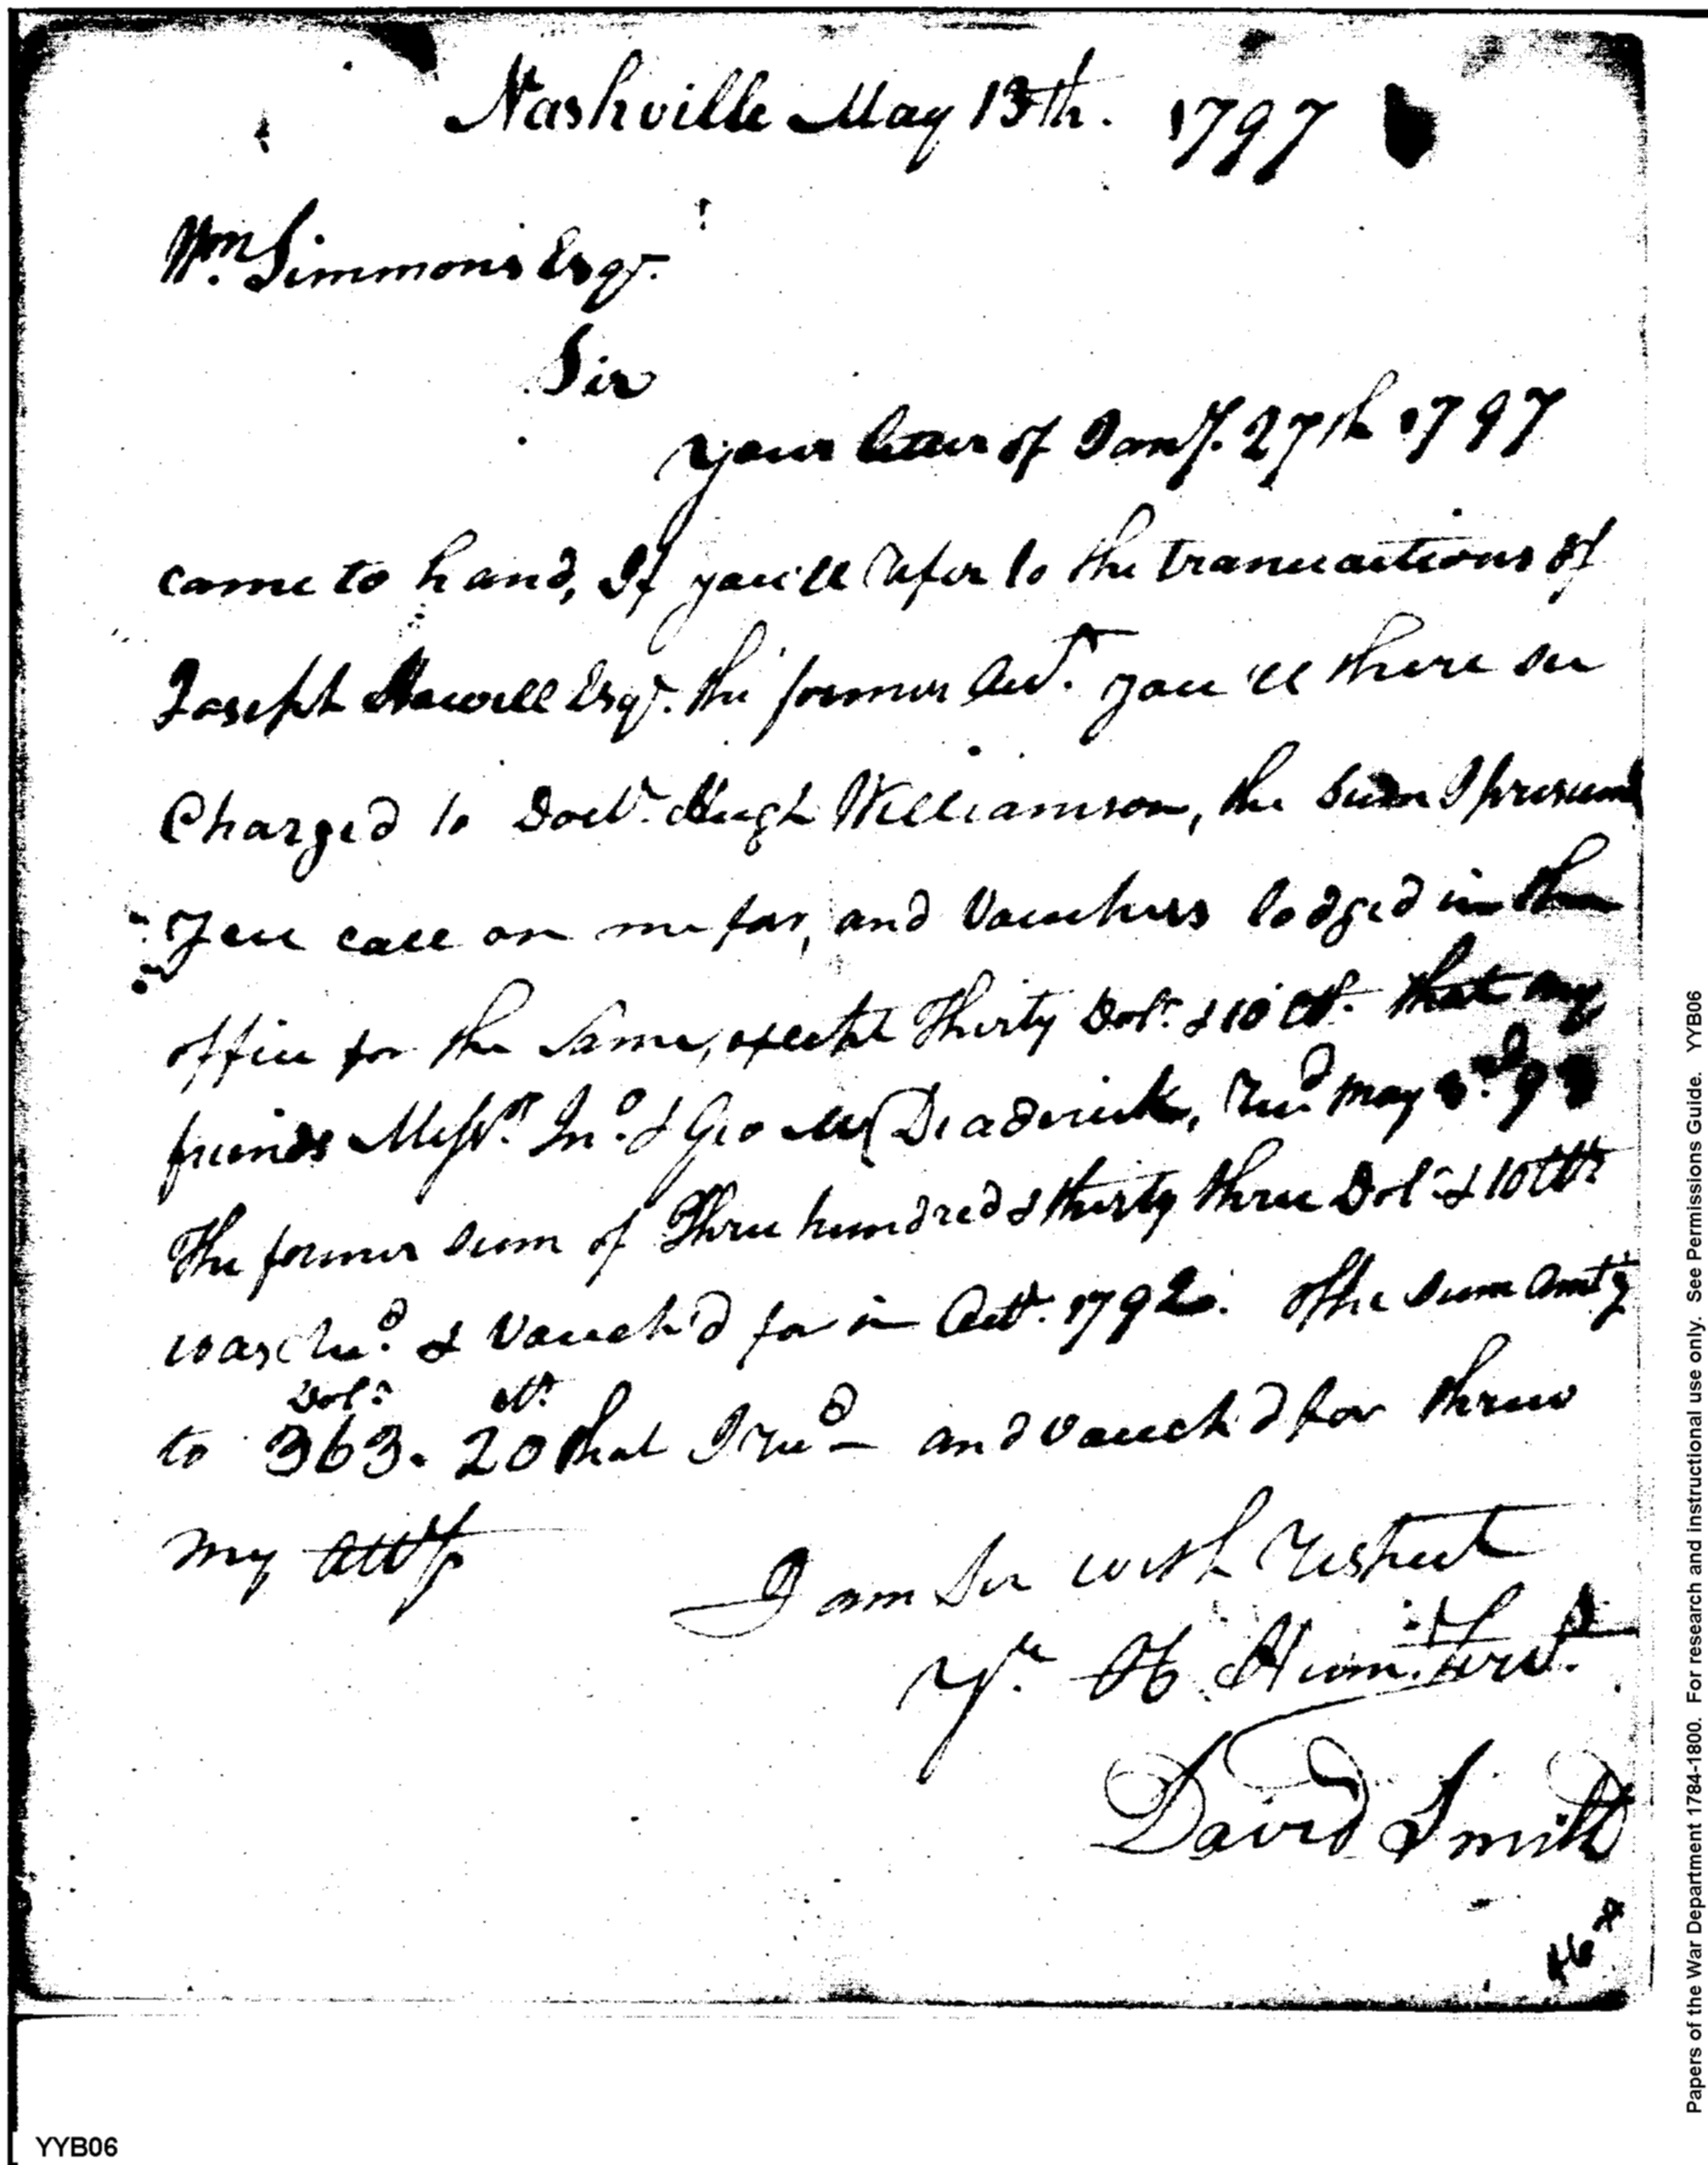 Nashville May 13th. 1797
Wm. Simmons Esqr.
Sir
your letter of Jany. 27th 1797
came to hand, If you'll refer to the transactions of
Joseph Howell Esqr. the former Act. you 'll there see
Charged to Doctr. Hugh Williamson, the sum I presume
You call on me for, and Vouchers lodged in the
office for the Same, except Thirty Dols. & 10 Cts. that my
friends Messrs. Jno. & Geo M Deaderick, Recd. May 3rd. 93
The former sum of Three hundred & thirty three Dols. & 10 Cts
was Recd. & Vouch'd for in Octr. 1792. The sum Amtg
Dols. Cts.
to 363. 20 that I recd — and Vouch'd for threw
my atty
I am Sir with respect
Yr. Ob Hum. Servt.
David Smith
Papers of the War Department 1784-1800. For research and instructional use only. See Permissions Guide. YYB06
YYB06